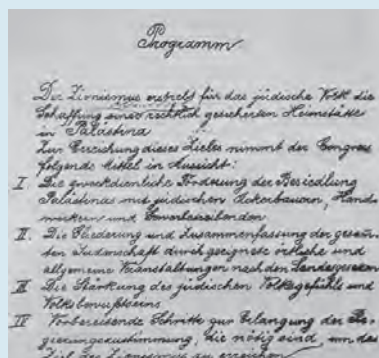 Programm
Der Zionismus erstrebt für das jüdische Volk die
Schaffung einer rechtlich gesicherten Heimstätte
in Palästina
Zur Erreichung dieses Zieles nimmt der Congress
folgende Mittel in Aussicht:
I. Die zweckdienliche Förderung der Besiedlung
Palästinas mit jüdischen Ackerbauern, Hand-
werkern und Gewerbetreibenden
II. Die Gliederung und Zusammenfassung der gesam-
ten Judenschaft durch geeignete örtliche und
allgemeine Veranstaltungen nach den Landesgesetzen
III. Die Stärkung des jüdischen Volksgefühls und
Volksbewußtseins
IV Vorbereitende Schritte zur Erlangung der Re-
gierungszustimmung, die nötig sind, um das
Ziel des Zionismus zu erreichen